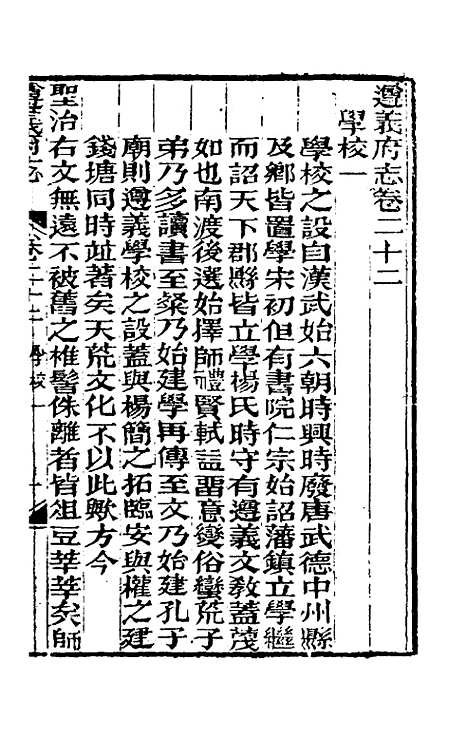 遵義府志卷二十二
學校一
學校之設自漢武始六朝時興時廢唐武德中州縣
及鄉皆置學宋初但有書院仁宗始詔藩鎮立學繼
而詔天下郡縣皆立學楊氏時守有遵義文教蓋茂
如也南渡後選始擇師禮賢軾益留意變俗蠻荒子
弟乃多讀書至粲乃始建學再傳至文乃始建孔子
廟則遵義學校之設蓋與楊簡之拓臨安與權之建
錢塘同時並著矣天荒文化不以此歟方今
聖治右文無遠不被舊之椎髻侏離者皆俎豆莘莘矣師
遵義府志 卷二十二 學校一 一